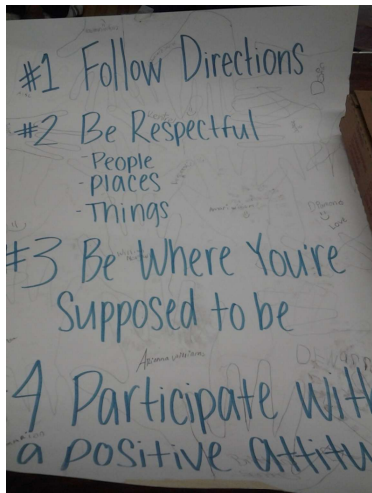 #1 Follow Directions
#2 Be Respectful
- People
- places
- Things
#3 Be Where You're
Supposed to be
4 Participate with
a positive attitu
Love